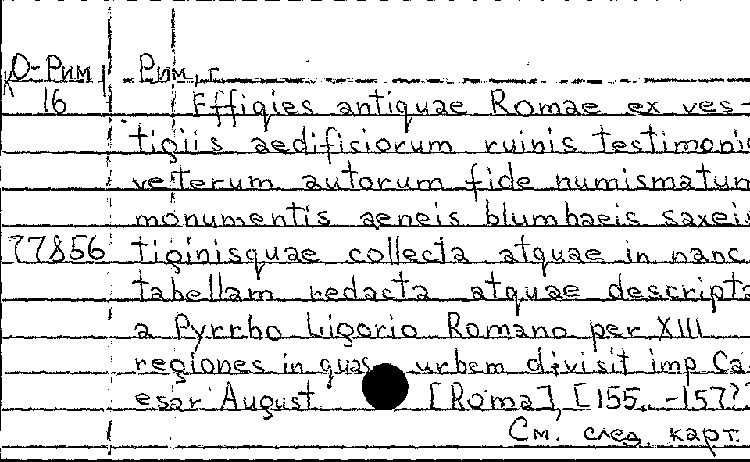 О-Рим Рим, г.
16 Effigies antiquae Romae ex ves-
tigiis aedifisiorum ruinis testimonio
veterum autorum fide numismatum
monumentis aeneis blumbaeis saxeis
77856 tiginisquae collecta atquae in nanc
tabellam redacta atquae descripta
a Pyrrho Ligorio Romano per XIII
regiones in quas urbem divisit imp Ca-
esar August [Roma], [155. -157?
См. след. карт.